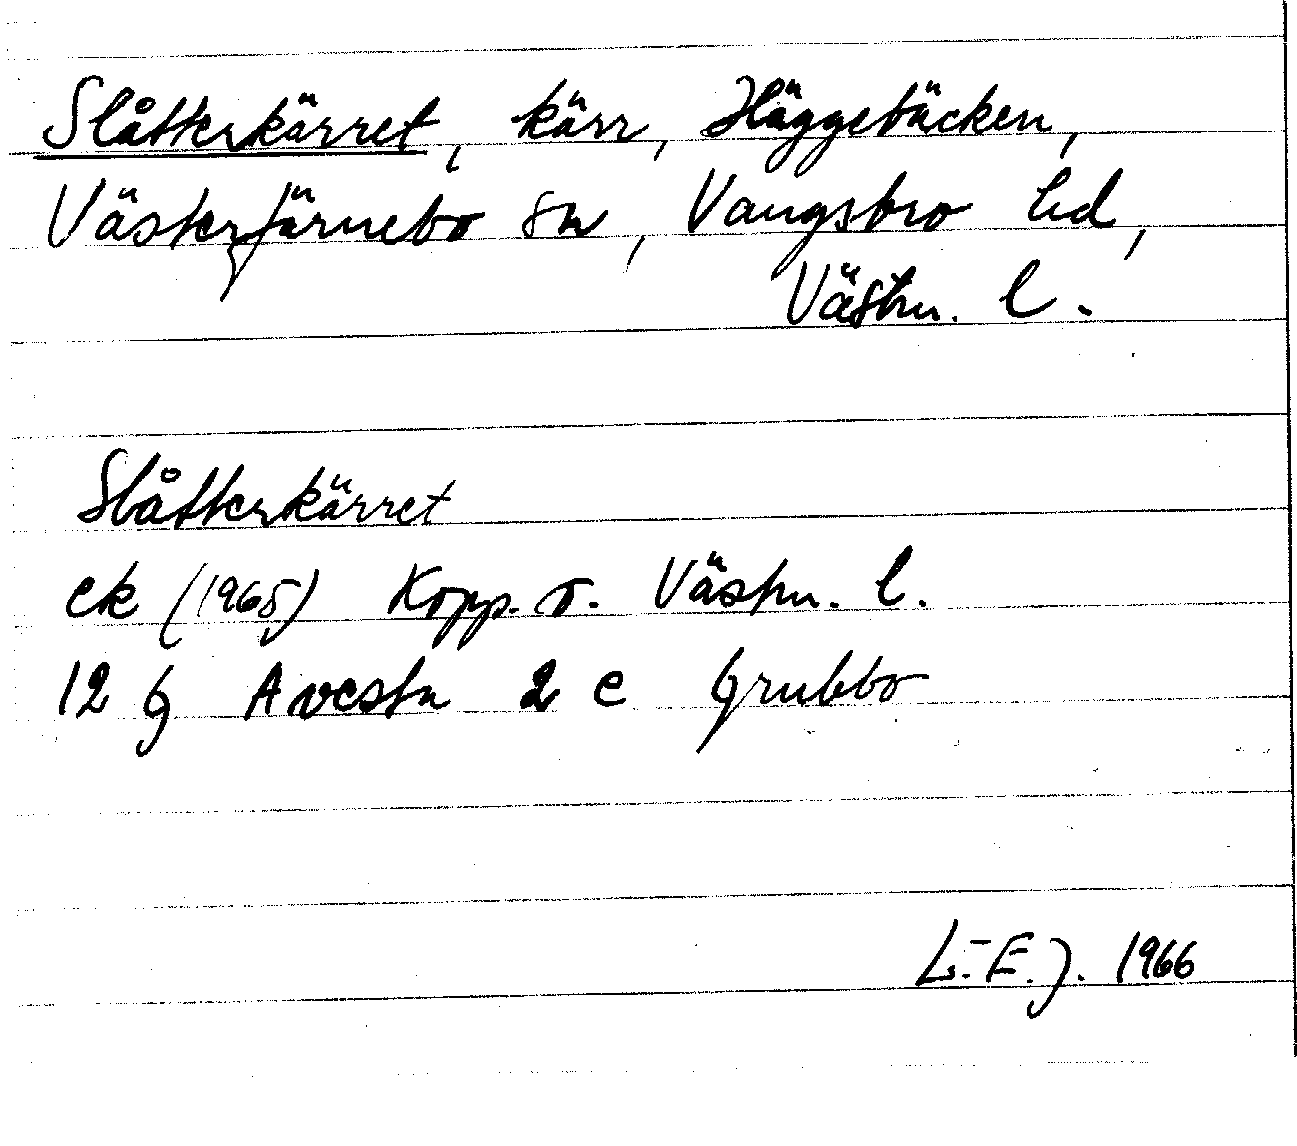 Slåtterkärret, kärr, Häggebäcken,
Västerfärnebo sn, Vangsbro hd,
Västm. l.
Slåtterkärret
ek (1965) Kopp. o. Västm. l.
12 G Avesta 2 e Grubbo
L.-E. J. 1966